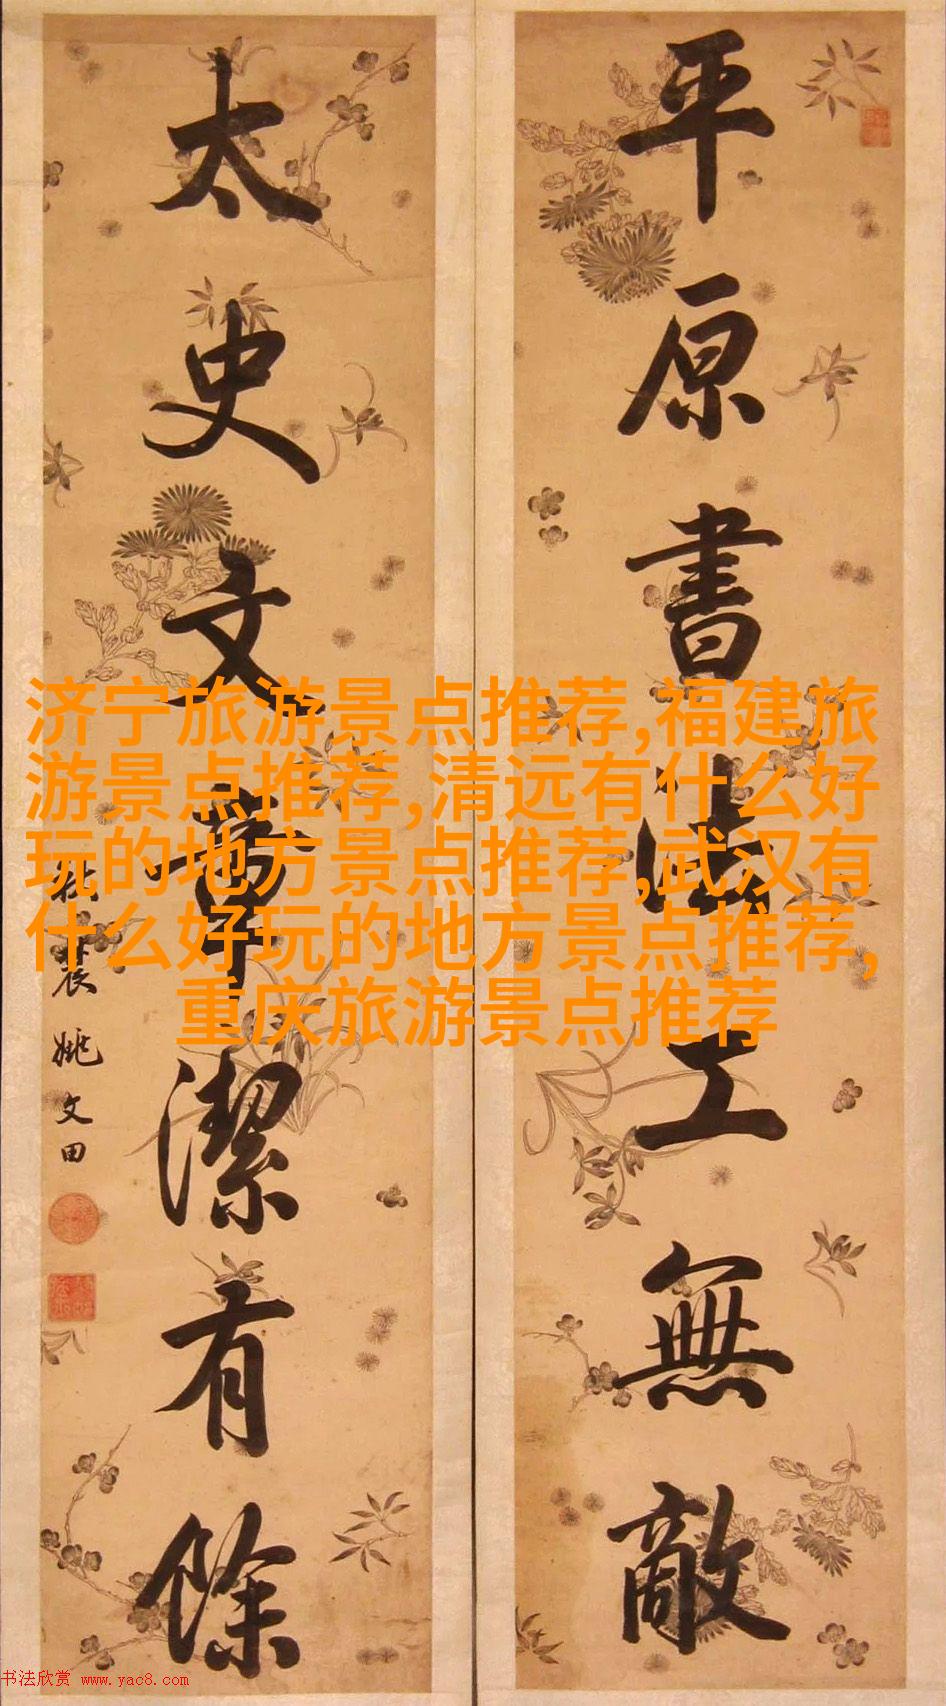 平原書法工無敵
太史文章潔有餘
姚文田
济宁旅游景点推荐,福建旅
游景点推荐,清远有什么好
玩的地方景点推荐,武汉有
什么好玩的地方景点推荐,
重庆旅游景点推荐
书法欣赏 www.yac8.com